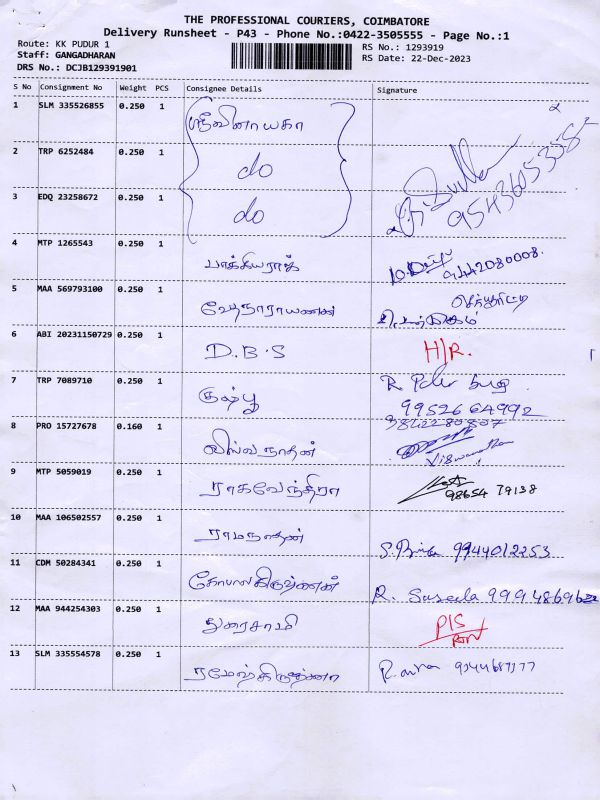 THE PROFESSIONAL COURIERS, COIMBATORE
Delivery Runsheet - P43 - Phone No.:0422-3505555 - Page No.:1
Route: KK PUDUR 1 RS No.: 1293919
Staff: GANGADHARAN RS Date: 22-Dec-2023
DRS No.: DCJB129391901
S No Consignment No Weight PCS Consignee Details Signature
1 SLM 335526855 0.250 1 ஸ்ரீவிநாயகா
2 TRP 6252484 0.250 1 do
3 EDQ 23258672 0.250 1 do
4 MTP 1265543 0.250 1 பாக்கியராஜ் 9442080008
5 MAA 569793100 0.250 1 வேதநாராயணன்
6 ABI 20231150729 0.250 1 D.B.S H/R.
7 TRP 7089710 0.250 1 குஷ்பூ R. 9952664992
8 PRO 15727678 0.160 1 விஸ்வநாதன் Viswanathan
9 MTP 5059019 0.250 1 ராகவேந்திரா 98654 79138
10 MAA 106502557 0.250 1 ராமநாதன் 9944012253
11 CDM 50284341 0.250 1 கோபாலகிருஷ்ணன் R. Suseela
12 MAA 944254303 0.250 1 துரைசாமி
13 SLM 335554578 0.250 1 ரமேஷ்கிருஷ்ணா